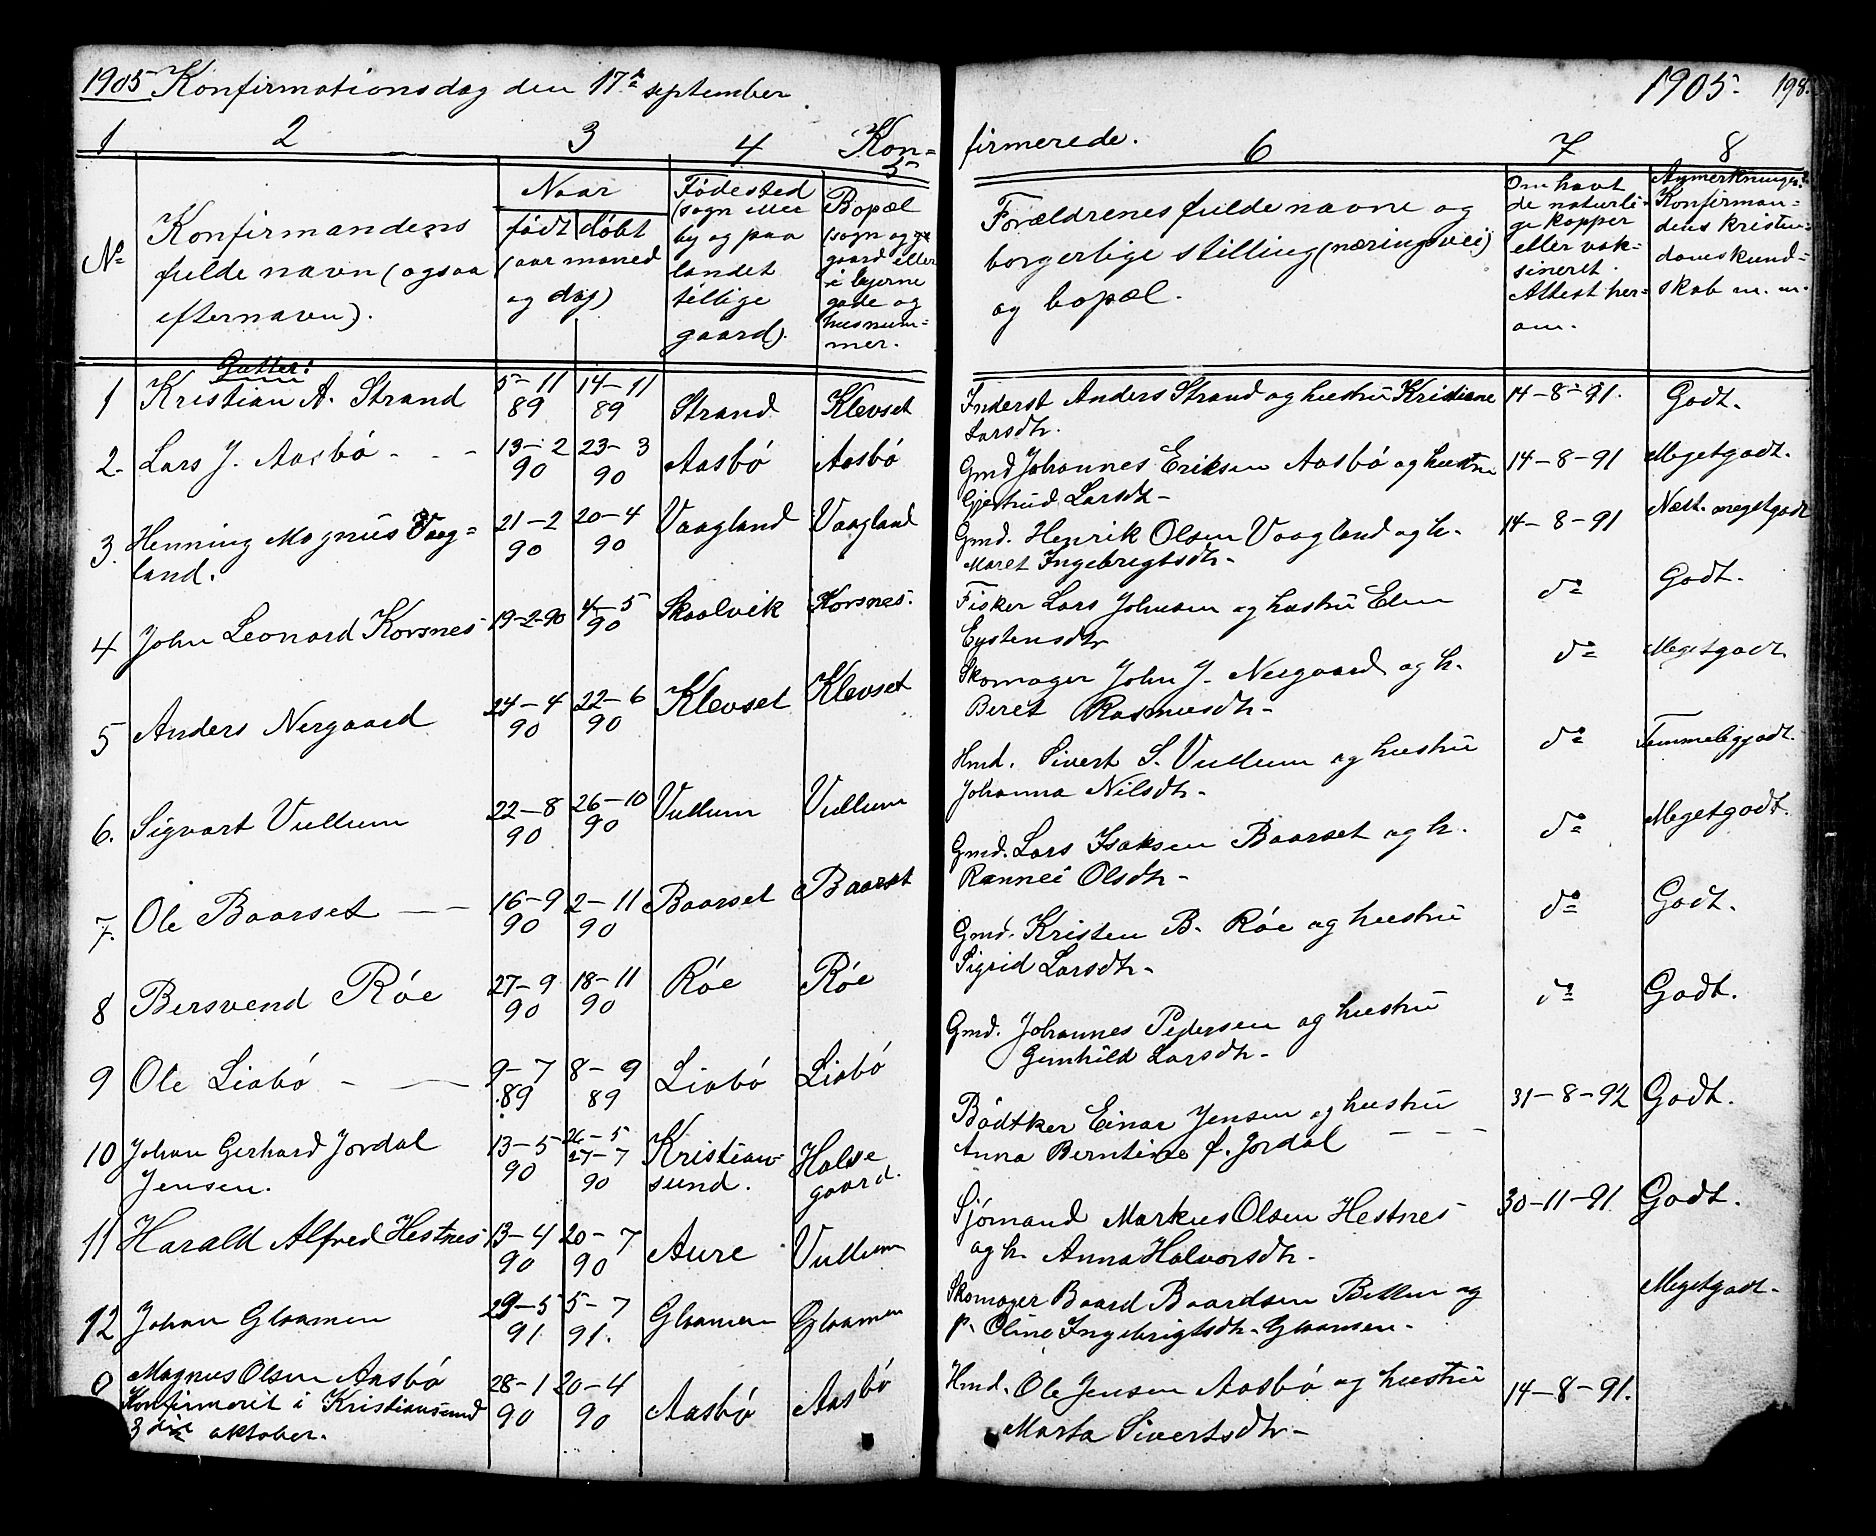 1905 Konfirmationsdag den 17de september
1 2 3 4 Kon=
5
No
Konfirmandens
fulde navn (ogsaa
efternavn).
Naar
født døbt
(aar maaned
og dag)
Fødested
(sogn eller
by og paa
landet
tillige
gaard).
Bopæl
(sogn og
gaard eller
i byerne
gade og
husnum=
mer.
Gutter:
1 Kristian A. Strand 5-11 89 14-11 89 Strand Klevset
2. Lars J. Aasbó - - - 13-2 90 23-3 90 Aasbó Aasbó
3. Henning Magnus Vaag=
land. 21-2 90 20-4 90 Vaagland Vaagland
4 John Leonard Korsnes 19-2-90 4-5 90 Skaalvik Korsnes.
5 Anders Nergaard 24-4 90 22-6 90 Klevset Klevset
6. Sigvart Vullum 22-8 90 26-10 90 Vullum Vullum
7. Ole Baarset - - 16-9 90 2-11 90 Baarset Baarset
8 Bersvend Róe 27-9 90 18-11 90 Róe Róe
9 Ole Liabó - - 9-7 89 8-9 89 Liabó Liabó
10 Johan Gerhard Jordal
Jensen. 13-5 90 26-5 27-7 90 Kristian=
sund. Halse
gaard.
11 Harald Alfred Hestnes 13-4 90 20-7 90 Aure Vullum
12 Johan Glaamen 29-5 91 5-7 91. Glaamen Glaamen
0 Magnus Olsen Aasbó
Konfirmerit i Kristiansund
3die oktober. 28-1 90 20-4 90 Aasbó Aasbó
1905. 198.
firmerede. 6 7 8
Forældrenes fulde navne og
borgerlige stilling (næringsvei)
og bopæl.
Om havt
de naturli=
ge kopper
eller vak=
sineret.
Attest her=
om.
Anmerkninger.
Konfirman=
dens kristen=
domskund=
skab m. m.
Inderst Anders Strand og hustru Kristiane
Larsdtr. 14-8-91. Godt.
Gmd Johannes Eriksen Aasbó og hustru
Gjertrud Larsdtr- 14-8-91 Megetgodt.
Gmd. Henrik Olsen Vaagland og h.
Maret Ingebrigtsdtr- 14-8-91 Næst. megetgodt
Fisker Lars Johnsen og hustru Elen
Eystensdtr do Godt.
Skomager John J. Nergaard og h.
Beret Rasmusdtr- do Megetgodt.
Hmd. Sivert S. Vullum og hustru
Johanna Nilsdtr- do Temmeliggodt.
Gmd. Lars Isaksen Baarset og h.
Rannei Olsdtr- do Megetgodt.
Gmd. Kristen B. Róe og hustru
Sigrid Larsdtr- do Godt.
Gmd. Johannes Pedersen og hustru
Gunhild Larsdtr- do Godt.
Bódtker Einar Jensen og hustru
Anna Berntine f. Jordal - - - 31-8-92 Godt.
Sjómand Markus Olsen Hestnes
og h. Anna Halvorsdtr- 30-11-91 Godt.
Skomager Baard Baardsen Botten og
p. Oline Ingebrigtsdtr- Glaamen- Megetgodt.
Hmd. Ole Jensen Aasbó og hustru
Marta Sivertsdtr- 14-8-91.